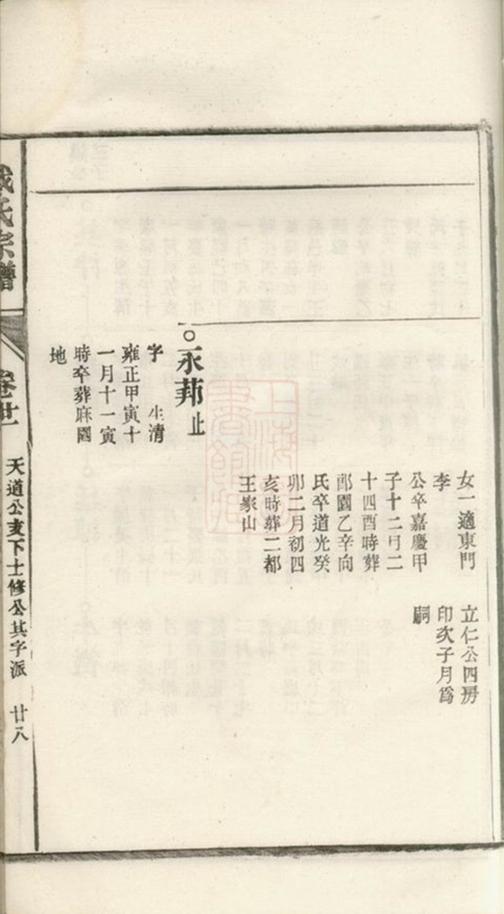 女一適東門
李
公卒嘉慶甲
子十二月二
十四酉時葬
邱園乙辛向
氏卒道光癸
卯二月初四
亥時葬二都
王家山
立仁公四房
印次子月為
嗣
○永邦止
字 生清
雍正甲寅十
一月十一寅
時卒葬麻園
地
氏宗譜
卷廿
天道公支下士修公其字派 廿八